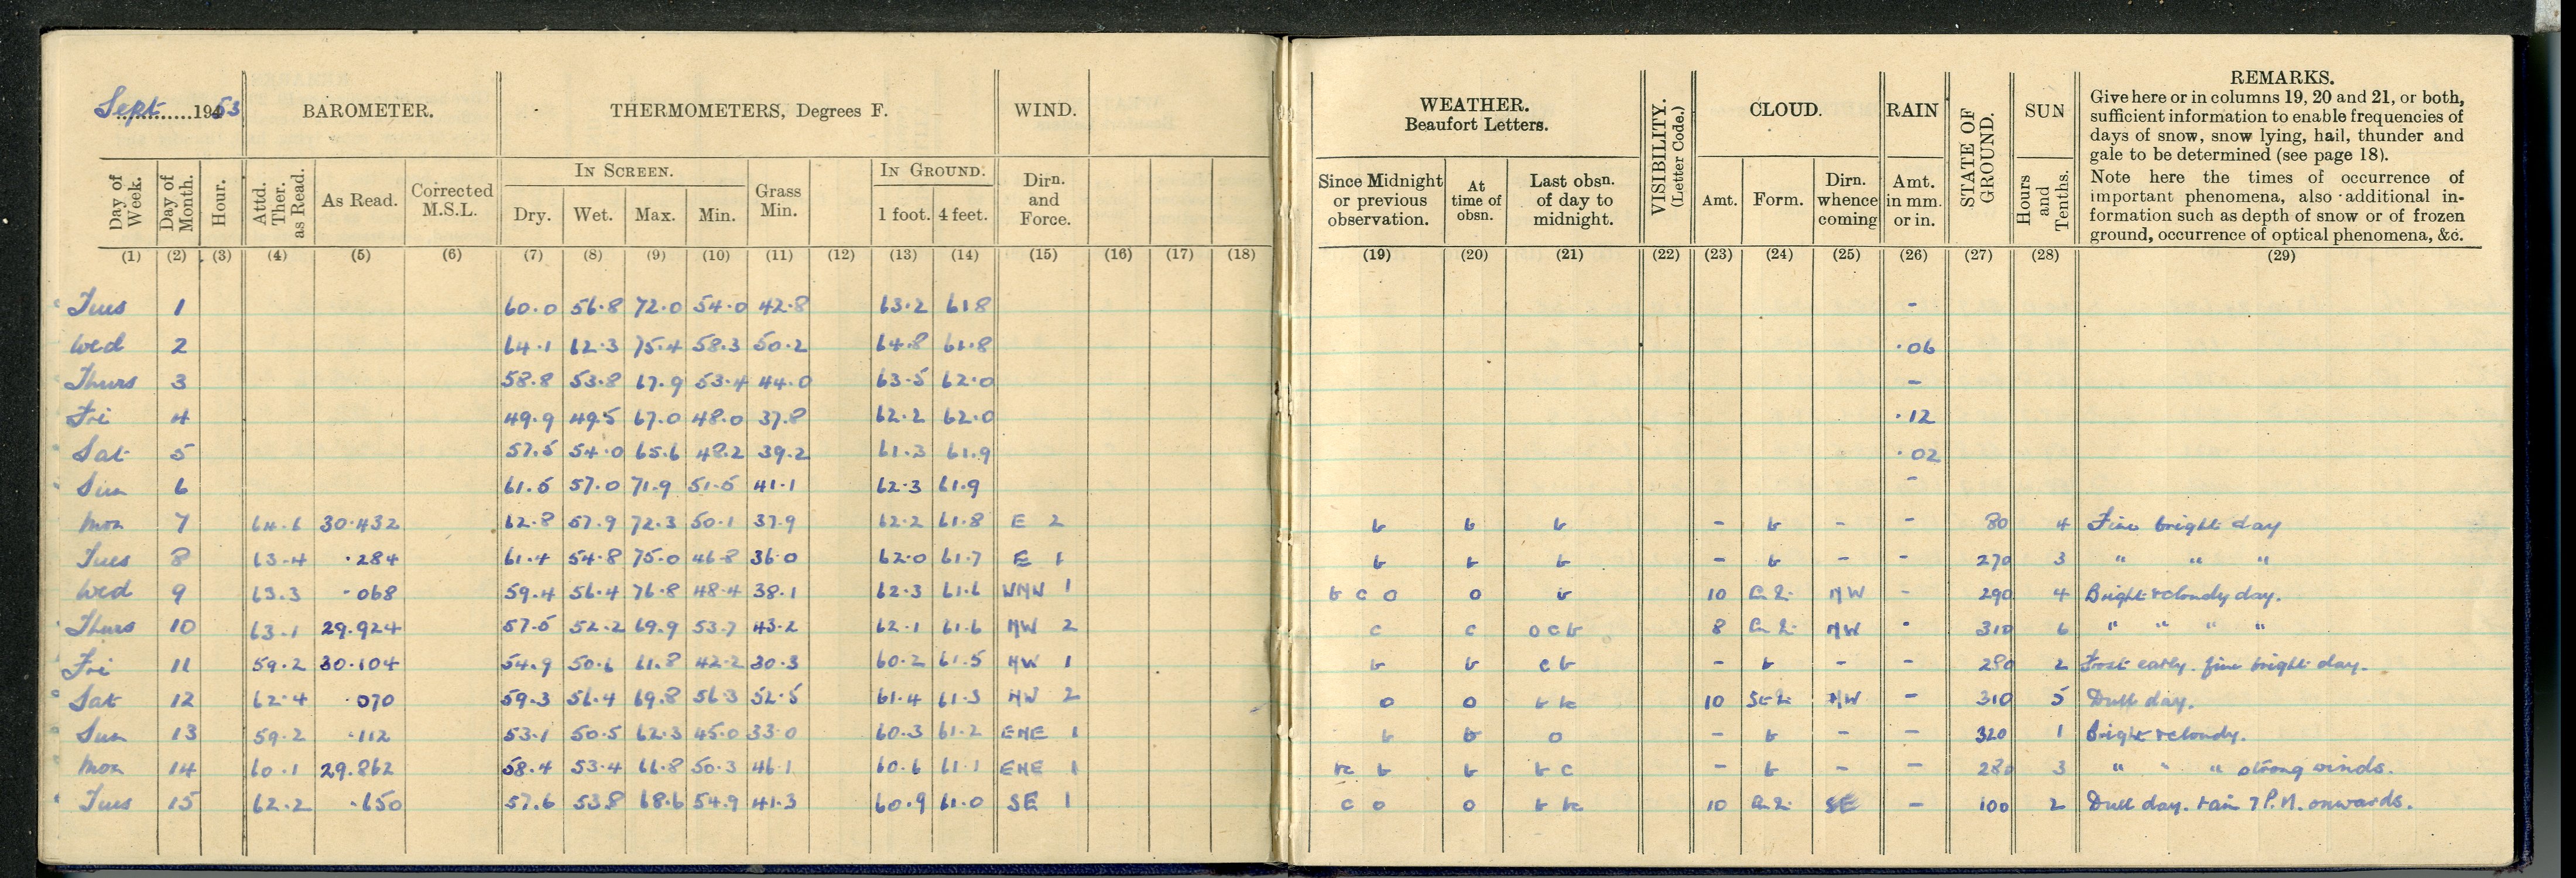 Sept 1953 BAROMETER. THERMOMETERS, Degrees F. WIND.
Day of Week. Day of Month. Hour. Attd. Ther. as Read. As Read. Corrected M.S.L. IN SCREEN. Dry. Wet. Max. Min. Grass Min. IN GROUND. 1 foot. 4 feet. Dirn. and Force.
(1) (2) (3) (4) (5) (6) (7) (8) (9) (10) (11) (12) (13) (14) (15) (16) (17) (18)
Tues 1 60.0 56.8 72.0 54.0 42.8 63.2 61.8
Wed 2 64.1 62.3 75.4 58.3 50.2 64.8 61.8
Thurs 3 58.8 53.8 67.9 53.4 44.0 63.5 62.0
Fri 4 49.9 49.5 67.0 48.0 37.8 62.2 62.0
Sat 5 57.5 54.0 65.6 48.2 39.2 61.3 61.9
Sun 6 61.5 57.0 71.9 51.5 41.1 62.3 61.9
Mon 7 64.6 30.432 62.8 57.9 72.3 50.1 37.9 62.2 61.8 E 2
Tues 8 63.4 .284 61.4 54.8 75.0 46.8 36.0 62.0 61.7 E 1
Wed 9 63.3 .068 59.4 56.4 76.8 48.4 38.1 62.3 61.6 WNW 1
Thurs 10 63.1 29.924 57.5 52.2 69.9 53.7 43.2 62.1 61.6 NW 2
Fri 11 59.2 30.104 54.9 50.6 61.8 42.2 30.3 60.2 61.5 NW 1
Sat 12 62.4 .070 59.3 56.4 69.8 56.3 52.5 61.4 61.3 NW 2
Sun 13 59.2 .112 53.1 50.5 62.3 45.0 33.0 60.3 61.2 ENE 1
Mon 14 60.1 29.862 58.4 53.4 66.8 50.3 46.1 60.6 61.1 ENE 1
Tues 15 62.2 .650 57.6 53.8 68.6 54.9 41.3 60.9 61.0 SE 1
WEATHER. Beaufort Letters. VISIBILITY. (Letter Code.) CLOUD. RAIN STATE OF GROUND. SUN
REMARKS.
Give here or in columns 19, 20 and 21, or both,
sufficient information to enable frequencies of
days of snow, snow lying, hail, thunder and
gale to be determined (see page 18).
Note here the times of occurrence of
important phenomena, also additional in-
formation such as depth of snow or of frozen
ground, occurrence of optical phenomena, &c.
Since Midnight or previous observation. At time of obsn. Last obsn. of day to midnight. Amt. Form. Dirn. whence coming Amt. in mm. or in. Hours and Tenths.
(19) (20) (21) (22) (23) (24) (25) (26) (27) (28) (29)
-
.06
-
.12
.02
-
b b b - b - - 80 4 Fine bright day
b b b - b - - 270 3 " " "
b c o o b 10 NW - 290 4 Bright & cloudy day.
c c o c b 8 NW 310 6 " " " "
b b c b - b - - 280 2 Frost early. fine bright day.
o o 10 NW - 310 5 Dull day.
b b o - b - - 320 1 Bright & cloudy.
b b b c - b - - 280 3 " " " strong winds.
c o o 10 SE - 100 2 Dull day. rain 7 P.M. onwards.